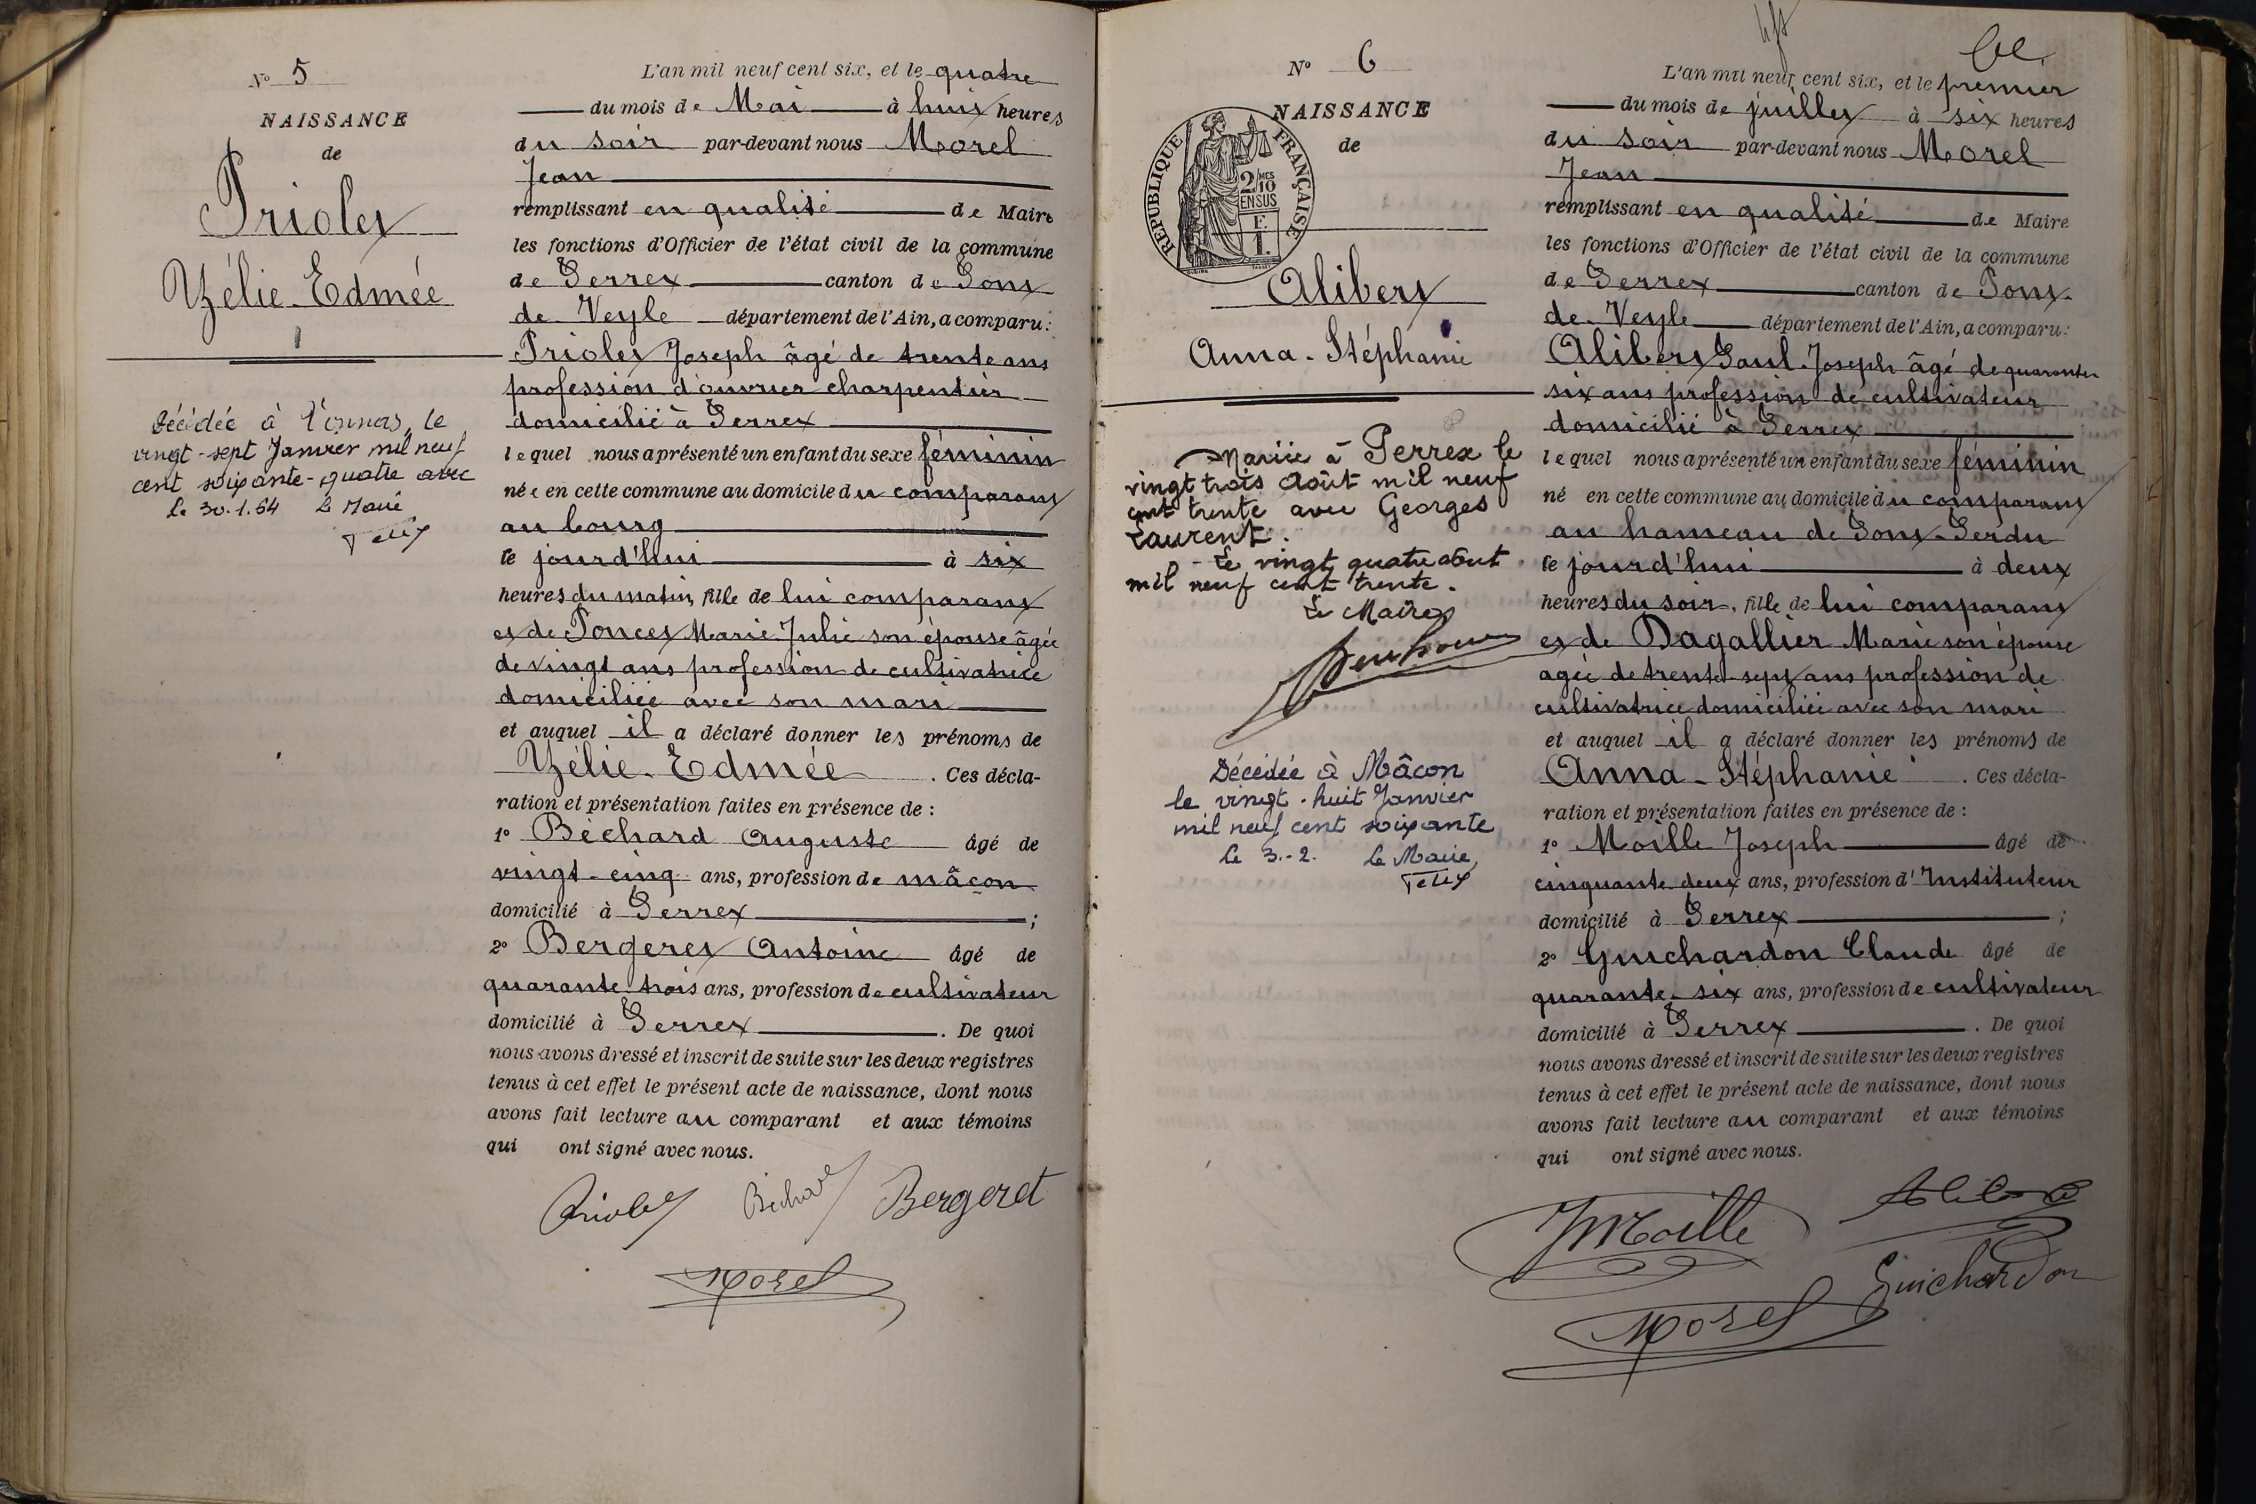 N° 5
NAISSANCE
de
Priolet
Zélie-Edmée
Décédée à Vonnas, le
vingt-sept Janvier mil neuf
cent soixante-quatre avec
Le 30.1.64 Le Maire
L'an mil neuf cent six, et le quatre
du mois de Mai à huit heures
du soir par-devant nous Morel
Jean
remplissant en qualité de Maire
les fonctions d'Officier de l'état civil de la commune
de Perrex canton de Pont
de Veyle département de l'Ain, a comparu:
Priolet Joseph âgé de trente ans
profession d'ouvrier charpentier
domicilié à Perrex
lequel nous a présenté un enfant du sexe féminin
née en cette commune au domicile du comparant
au bourg
le jourd'hui à six
heures du matin, fille de lui comparant
et de Poncet Marie Julie son épouse âgée
de vingt ans profession de cultivatrice
domiciliée avec son mari
et auquel il a déclaré donner les prénoms de
Zélie-Edmée . Ces décla-
ration et présentation faites en présence de :
1° Béchard Auguste âgé de
vingt-cinq ans, profession de mâçon
domicilié à Perrex ;
2° Bergeret Antoine âgé de
quarante trois ans, profession de cultivateur
domicilié à Perrex . De quoi
nous avons dressé et inscrit de suite sur les deux registres
tenus à cet effet le présent acte de naissance, dont nous
avons fait lecture au comparant et aux témoins
qui ont signé avec nous.
Priolet Béchard Bergeret
Morel
N° 6
NAISSANCE
de
RÉPUBLIQUE FRANÇAISE
2/10 MES
EN SUS
F.
1.
Alibert
Anna-Stéphanie
Mariée à Perrex le
vingt trois Août mil neuf
cent trente avec Georges
Laurent.
Le vingt quatre août
mil neuf cent trente.
Le Maire
Décédée à Mâcon
le vingt-huit Janvier
mil neuf cent soixante
Le 3.-2. Le Maire,
L'an mil neuf cent six, et le premier
du mois de juillet à six heures
du soir par-devant nous Morel
Jean
remplissant en qualité de Maire
les fonctions d'Officier de l'état civil de la commune
de Perrex canton de Pont-
de-Veyle département de l'Ain, a comparu:
Alibert Paul-Joseph âgé de quarante
six ans profession de cultivateur
domicilié à Perrex
lequel nous a présenté un enfant du sexe féminin
né en cette commune au domicile du comparant
au hameau de Pont-Perdu
le jourd'hui à deux
heures du soir, fille de lui comparant
et de Dagallier Marie son épouse
agée de trente-sept ans profession de
cultivatrice domiciliée avec son mari
et auquel il a déclaré donner les prénoms de
Anna-Stéphanie . Ces décla-
ration et présentation faites en présence de :
1° Moille Joseph âgé de
cinquante deux ans, profession d'Instituteur
domicilié à Perrex ;
2° Guichardon Claude âgé de
quarante-six ans, profession de cultivateur
domicilié à Perrex . De quoi
nous avons dressé et inscrit de suite sur les deux registres
tenus à cet effet le présent acte de naissance, dont nous
avons fait lecture au comparant et aux témoins
qui ont signé avec nous.
JMoille Alibert
Guichardon
Morel